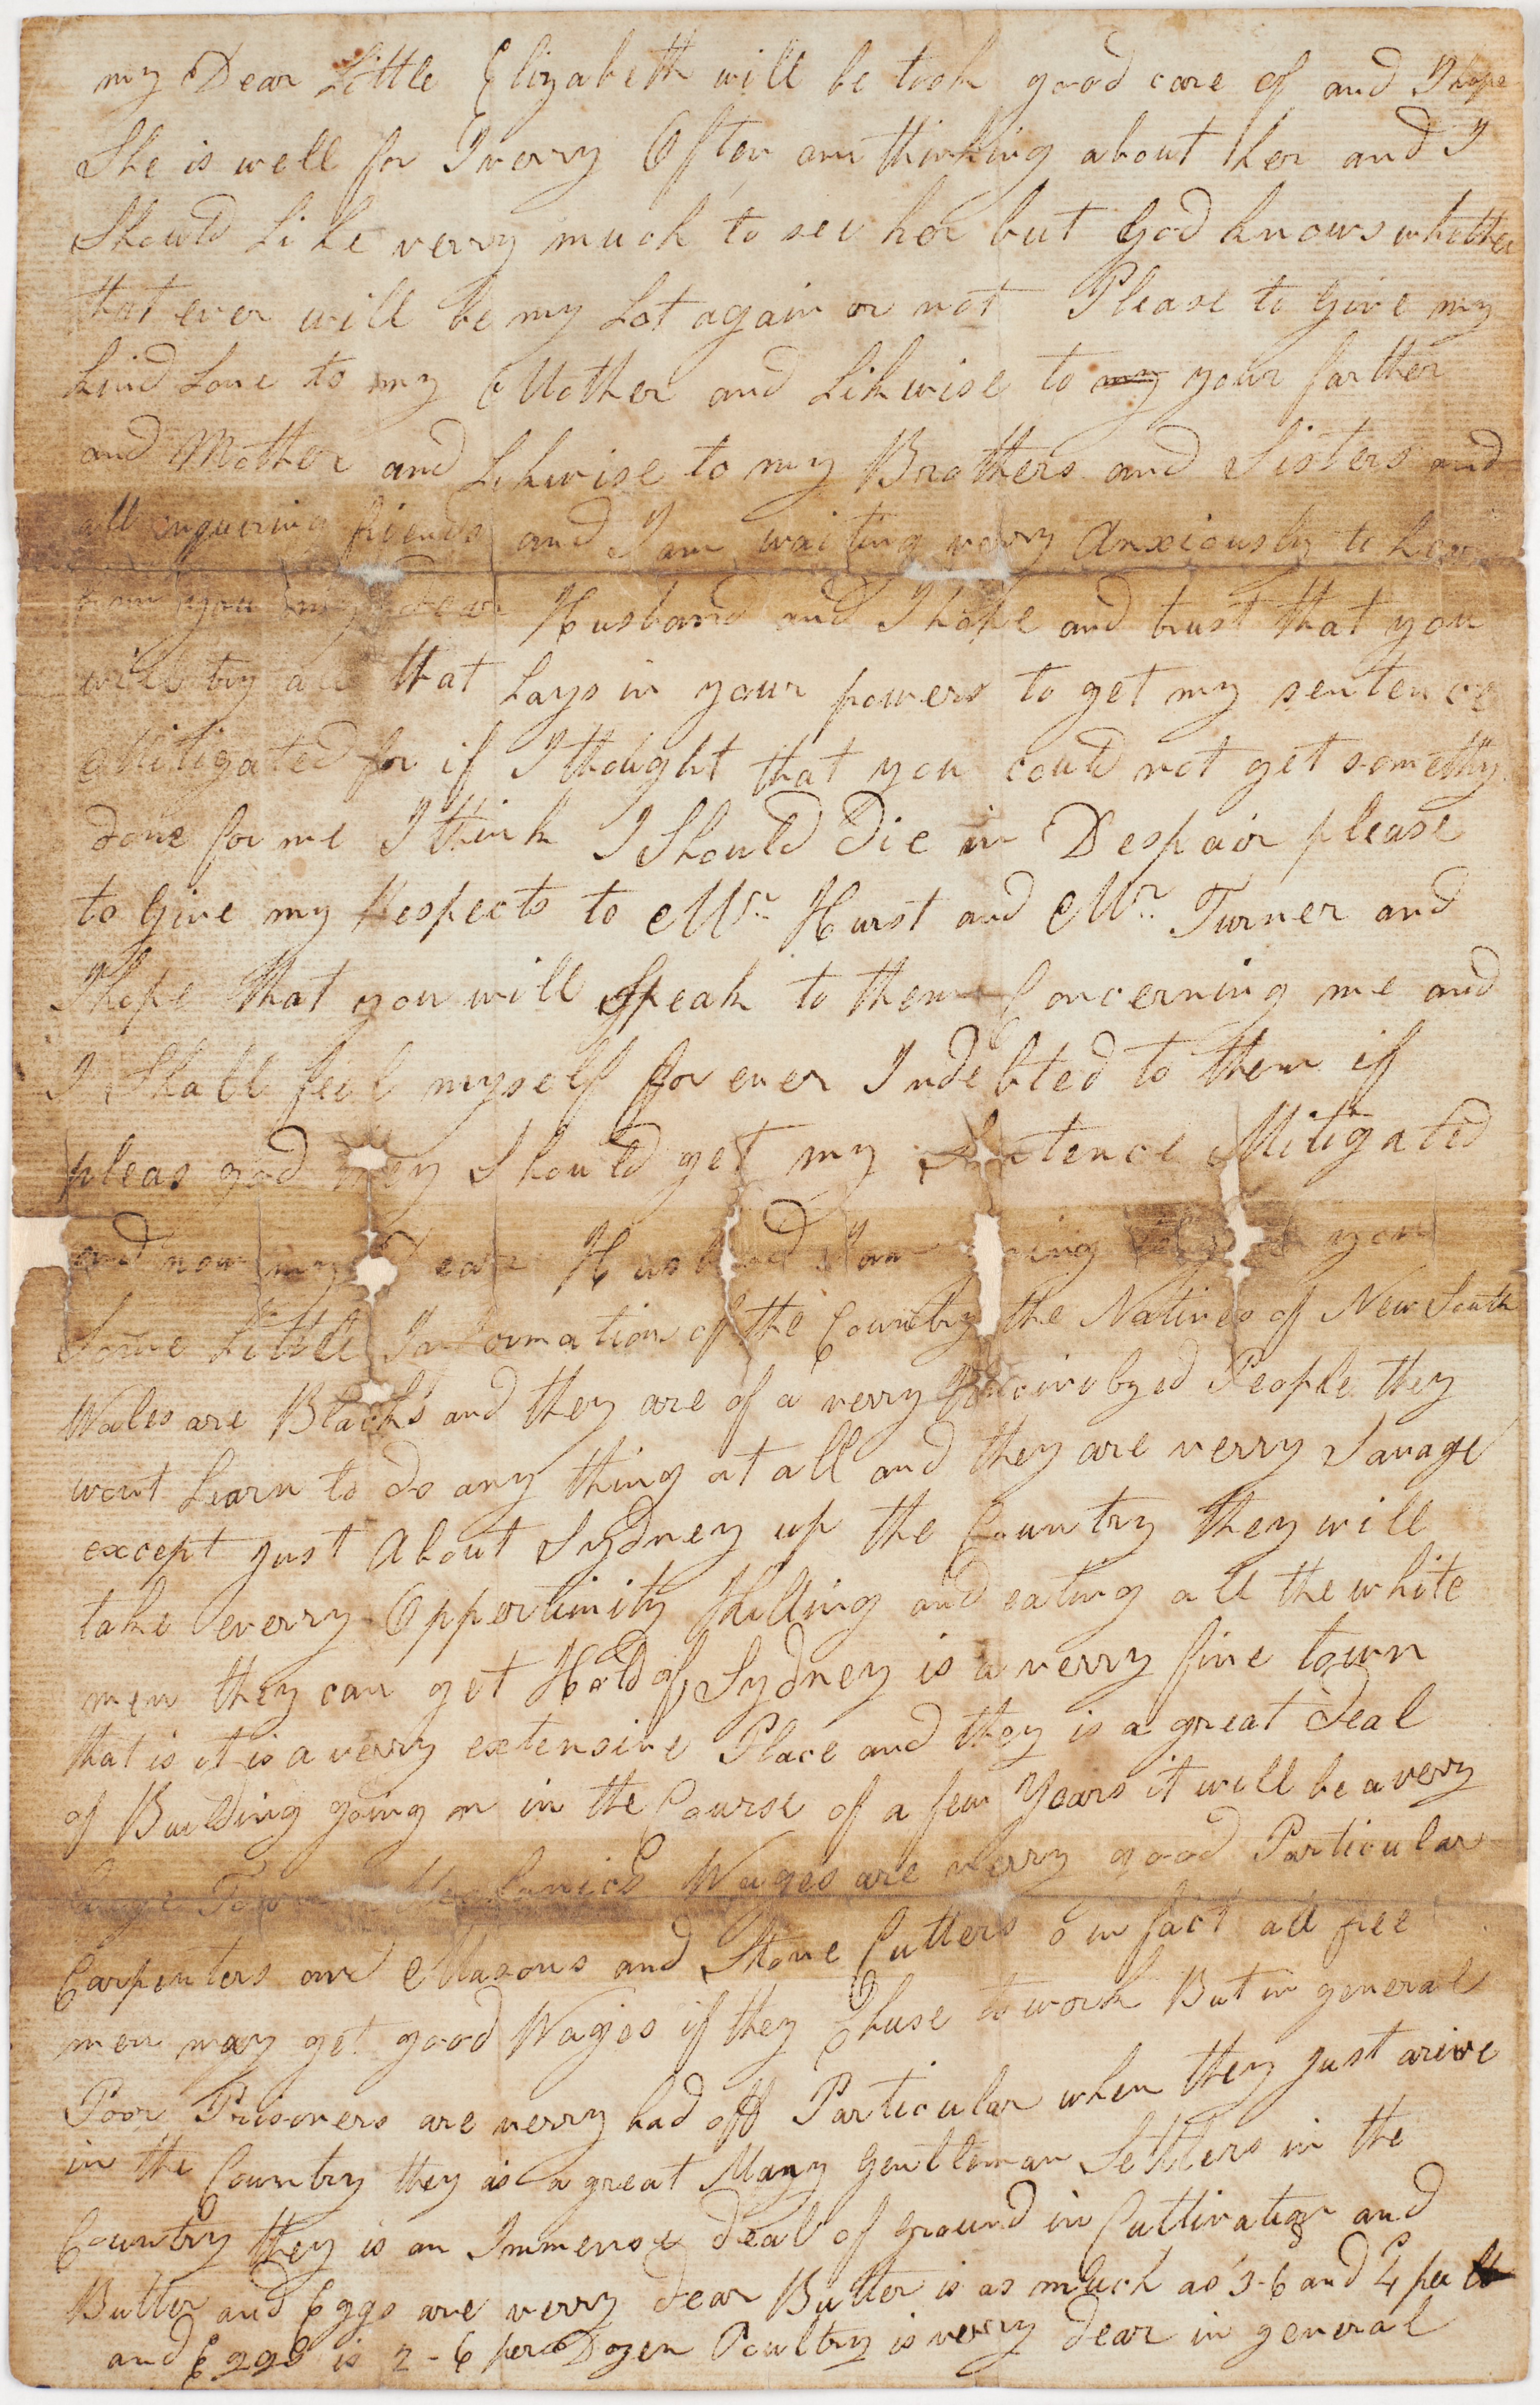 my Dear Little Elizabeth will be took good care of and I hope
She is well for I verry Often am thinking about her and I
Should Like verry much to see her but God knows whether
that ever will be my Lot again or not Please to Give my
kind Love to my Mother and Likwise to my your farther
and Mother and Likwise to my Brothers and Sisters and
all enquering friends and I am waiting verry Anxiously to hear
from you my dear Husband and I hope and trust that you
will try all that Lays in your powers to get my sentence
Mitigated for if I thought that you could not get somethg
done for me I think I Should Die in Despair please
to Give my Respects to Mr. Hurst and Mr. Turner and
I hope that you will Speak to them Concerning me and
I Shall feel myself for ever Indebted to them if
pleas god they Should get my Sentence Mitigated
and now my Dear Husband I am going to you
Some Little Information of the Country the Natives of New South
Wales are Blacks and they are of a verry People they
wont Learn to do any thing at all and they are verry Savage
except just About Sydney up the Country they will
take every Oppertinity Killing and eating all the white
men they can get Hold of Sydney is a verry fine town
that is it is a verry extensive Place and they is a great deal
of Building going on in the Course of a few Years it will be a verry
large Town Mechanics Wages are verry good Particular
Carpenters and Masons and Stone Cutters o in fact all free
men may get good Wages if they Chuse to work But in general
Poor Prisoners are verry bad off Particular when they just arive
in the Country they is a great Many Gentleman Settlers in the
Country they is an Immense deal of ground in Cultivation and
Butter and Eggs are verry dear Butter is as much as 3-6 and 4 per lb
and Eggs is 2-6 per Dozen Poultry is verry dear in general